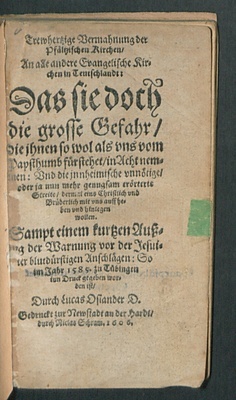 Trewhertzige Vermahnung der
Pfältzischen Kirchen/
An alle andere Evangelische Kir-
chen in Teutschlandt:
Das sie doch
die grosse Gefahr/
die ihnen so wol als vns vom
Bapsthumb fürstehet/in Acht nem-
men: Vnd die innheimische vnnötige/
oder ja nun mehr genugsam erörterte
Streite/ dermal eins Christlich vnd
Brüderlich mit vns auffheben
vnd hinlegen
wollen.
Sampt einem kurtzen Auß-
zug der Warnung vor der Jesui-
ter blutdürstigen Anschlägen: So
im Jahr 1585. zu Tübingen
inn Druck gegeben wor-
den ist/
Durch Lucas Osiander D.
Gedruckt zur Newstadt an der Hardt/
durch Niclas Schram, 1606.